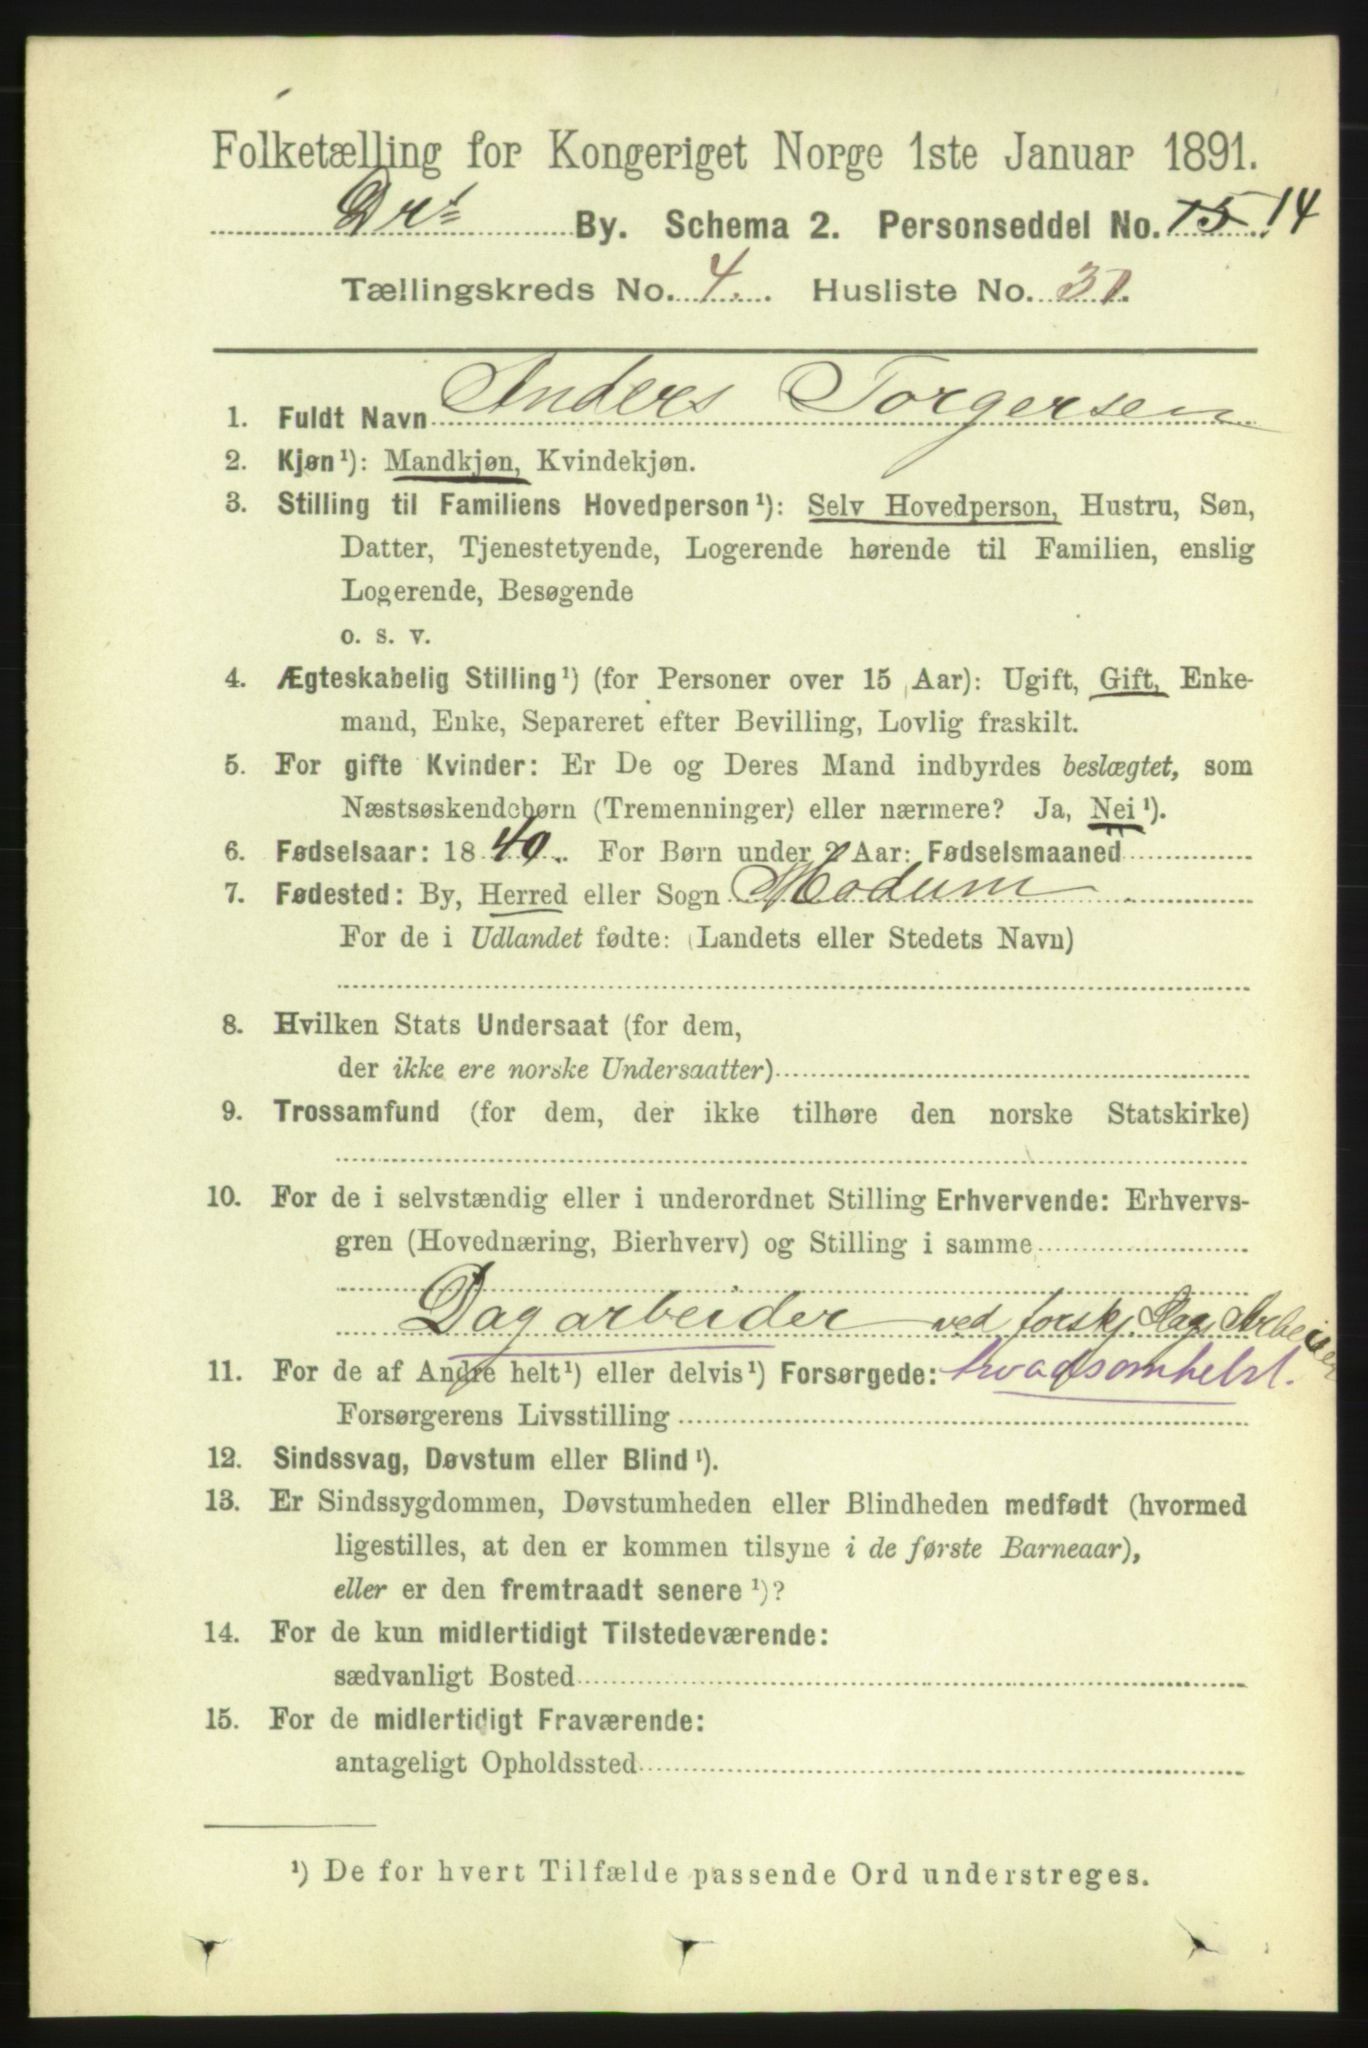 Folketælling for Kongeriget Norge 1ste Januar 1891.
Drn By. Schema 2. Personseddel No. 15 14
Tællingskreds No. 4. Husliste No. 31.
1. Fuldt Navn Anders Torgersen
2. Kjøn¹): Mandkjøn, Kvindekjøn.
3. Stilling til Familiens Hovedperson¹): Selv Hovedperson, Hustru, Søn,
Datter, Tjenestetyende, Logerende hørende til Familien, enslig
Logerende, Besøgende
o. s. v.
4. Ægteskabelig Stilling¹) (for Personer over 15 Aar): Ugift, Gift, Enke-
mand, Enke, Separeret efter Bevilling, Lovlig fraskilt.
5. For gifte Kvinder: Er De og Deres Mand indbyrdes beslægtet, som
Næstsøskendebørn (Tremenninger) eller nærmere? Ja, Nei¹).
6. Fødselsaar: 1840. For Børn under 2 Aar: Fødselsmaaned
7. Fødested: By, Herred eller Sogn Modum
For de i Udlandet fødte: (Landets eller Stedets Navn)
8. Hvilken Stats Undersaat (for dem,
der ikke ere norske Undersaatter)
9. Trossamfund (for dem, der ikke tilhøre den norske Statskirke)
10. For de i selvstændig eller i underordnet Stilling Erhvervende: Erhvervs-
gren (Hovednæring, Bierhverv) og Stilling i samme
Dagarbeider ved forskj. Slags Arbeider
11. For de af Andre helt¹) eller delvis¹) Forsørgede: hvadsomhelst.
Forsørgerens Livsstilling
12. Sindssvag, Døvstum eller Blind¹).
13. Er Sindssygdommen, Døvstumheden eller Blindheden medfødt (hvormed
ligestilles, at den er kommen tilsyne i de første Barneaar),
eller er den fremtraadt senere¹)?
14. For de kun midlertidigt Tilstedeværende:
sædvanligt Bosted
15. For de midlertidigt Fraværende:
antageligt Opholdssted
¹) De for hvert Tilfælde passende Ord understreges.